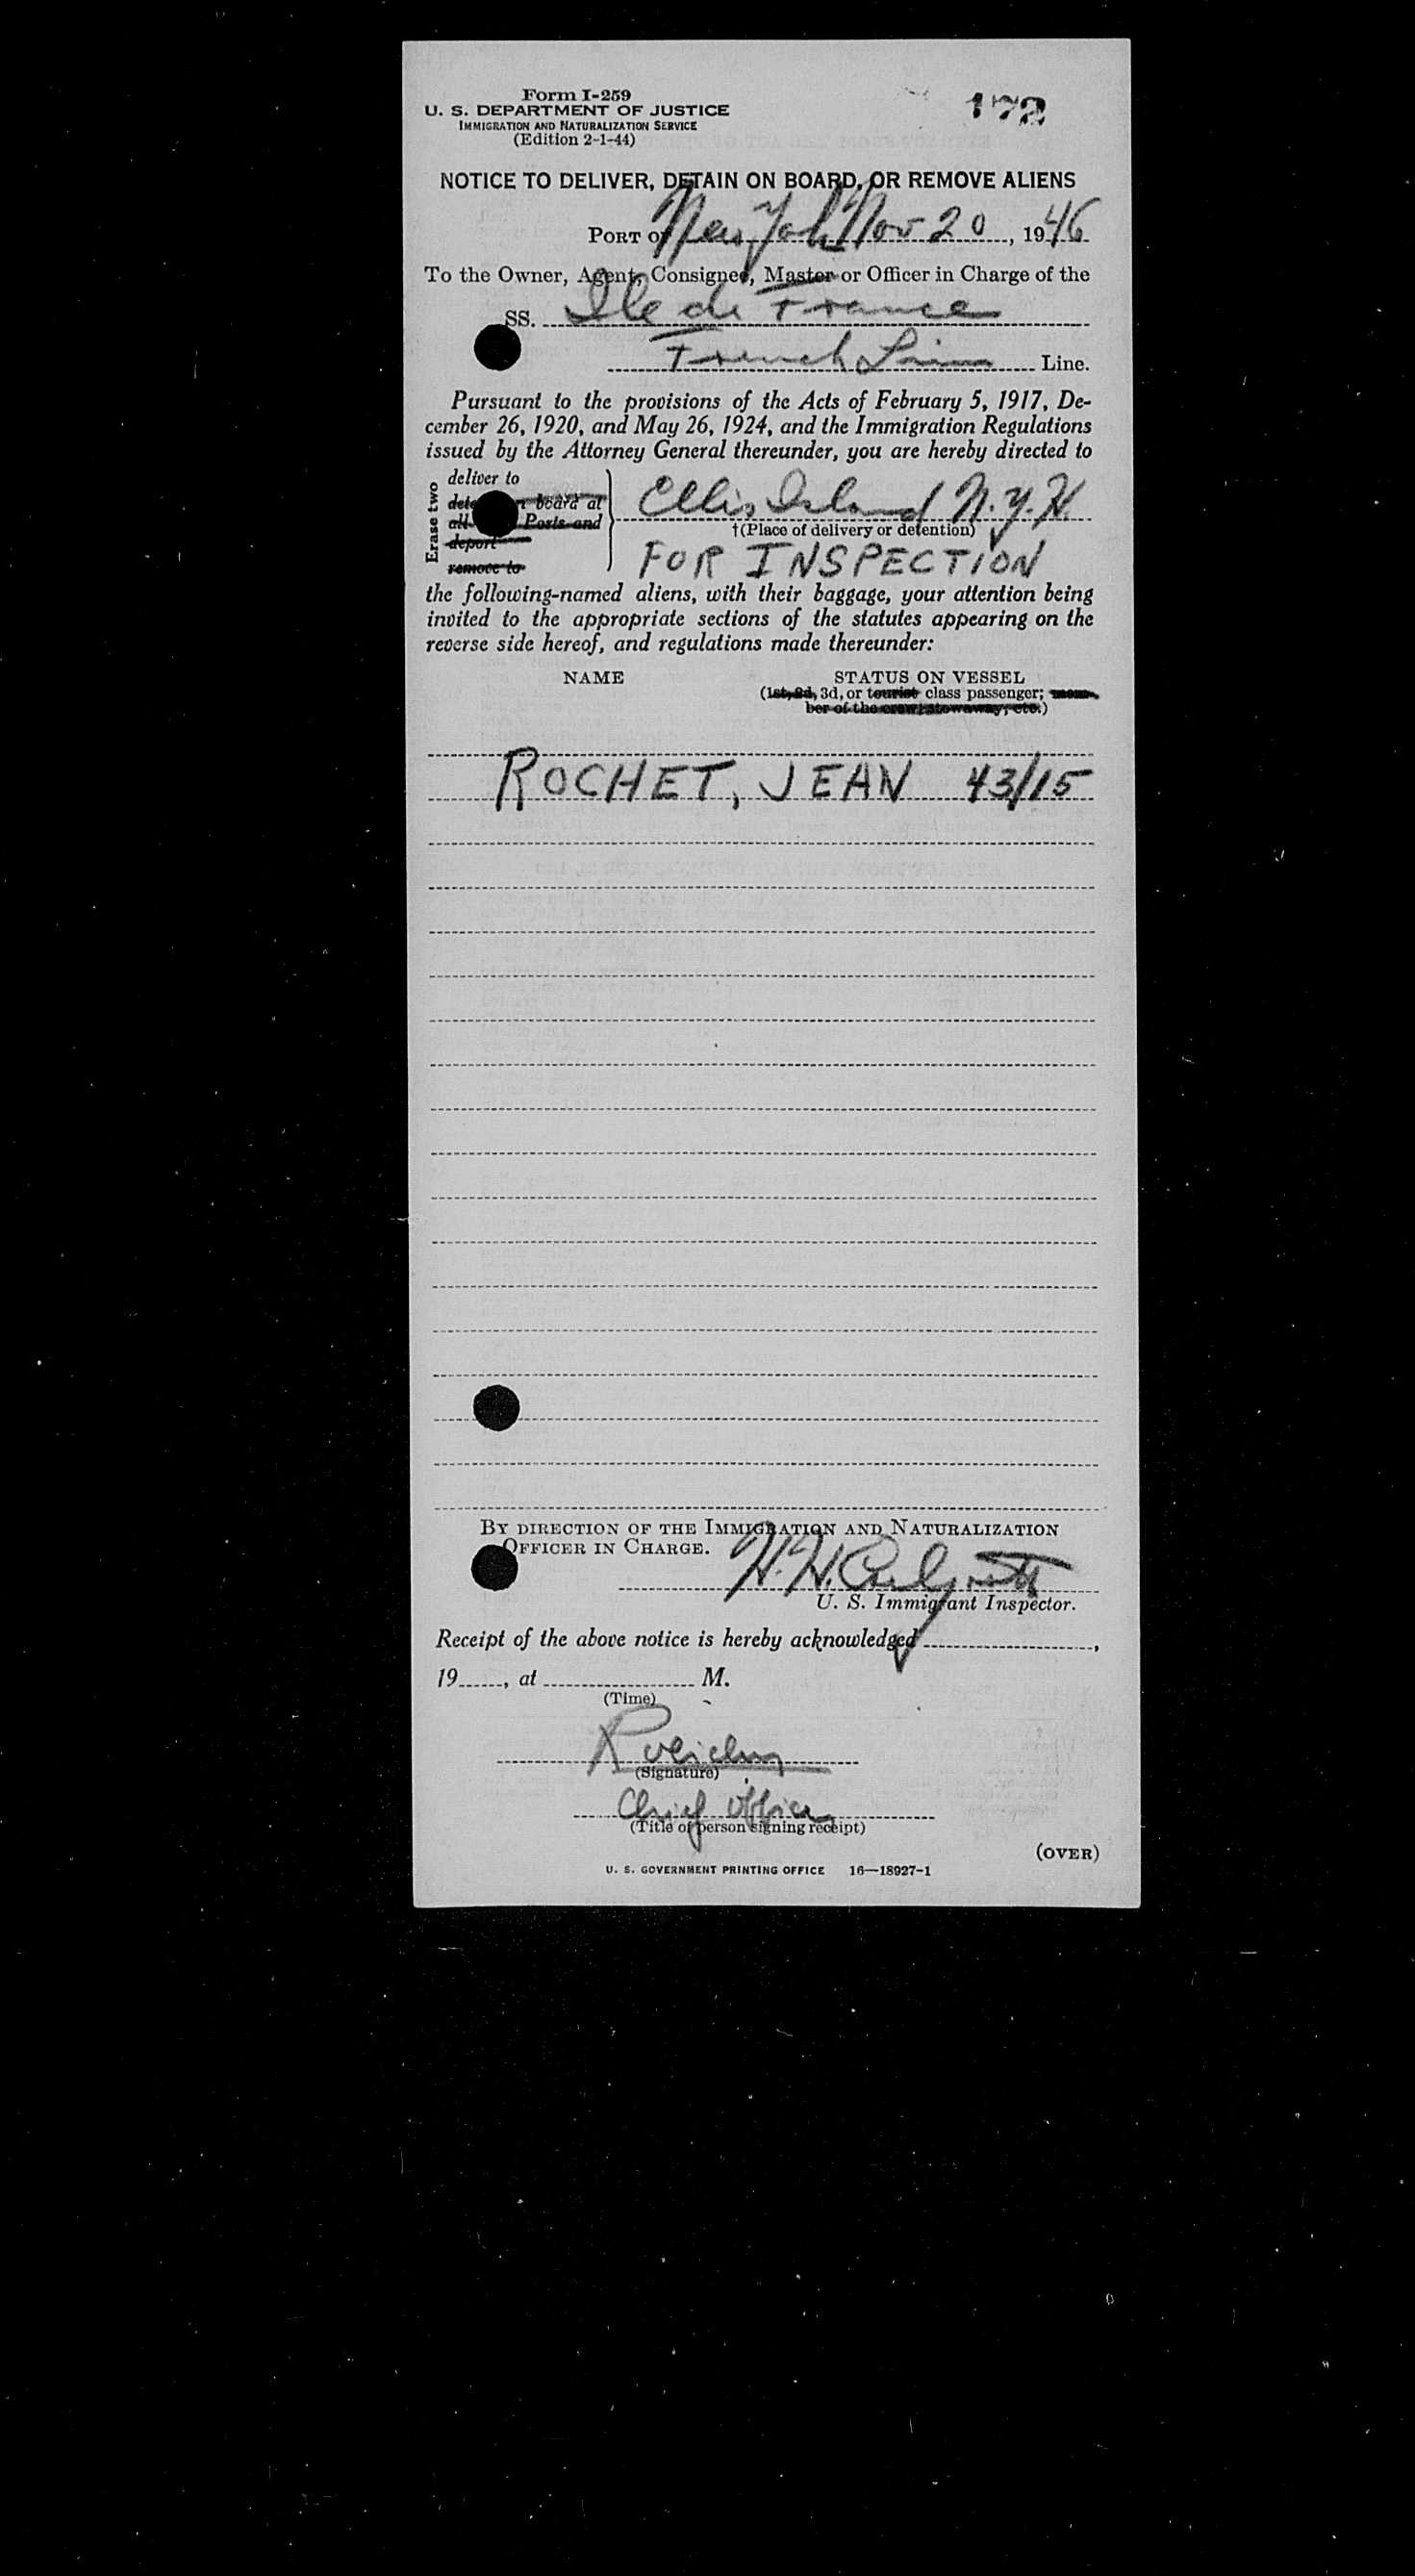 Form I-259
172
U. S. DEPARTMENT OF JUSTICE
IMMIGRATION AND NATURALIZATION SERVICE
(Edition 2-1-44)
NOTICE TO DELIVER, DETAIN ON BOARD, OR REMOVE ALIENS
PORT OF New York Nov 20, 1946
To the Owner, Agent, Consignee, Master or Officer in Charge of the
SS. Ile de France
French Line Line.
Pursuant to the provisions of the Acts of February 5, 1917, De-
cember 26, 1920, and May 26, 1924, and the Immigration Regulations
issued by the Attorney General thereunder, you are hereby directed to
Erase two
deliver to
board at
Ports and
deport
remove to
Ellis Island N.Y.H.
†(Place of delivery or detention)
FOR INSPECTION
the following-named aliens, with their baggage, your attention being
invited to the appropriate sections of the statutes appearing on the
reverse side hereof, and regulations made thereunder:
NAME STATUS ON VESSEL
(1st, 2d, 3d, or tourist class passenger; mem-
ber of the crew; stowaway; etc.)
ROCHET, JEAN 43/15
BY DIRECTION OF THE IMMIGRATION AND NATURALIZATION
OFFICER IN CHARGE.
U. S. Immigrant Inspector.
Receipt of the above notice is hereby acknowledged ,
19 , at M.
(Time)
(Signature)
Chief Officer
(Title of person signing receipt)
(OVER)
U. S. GOVERNMENT PRINTING OFFICE 16—18927-1